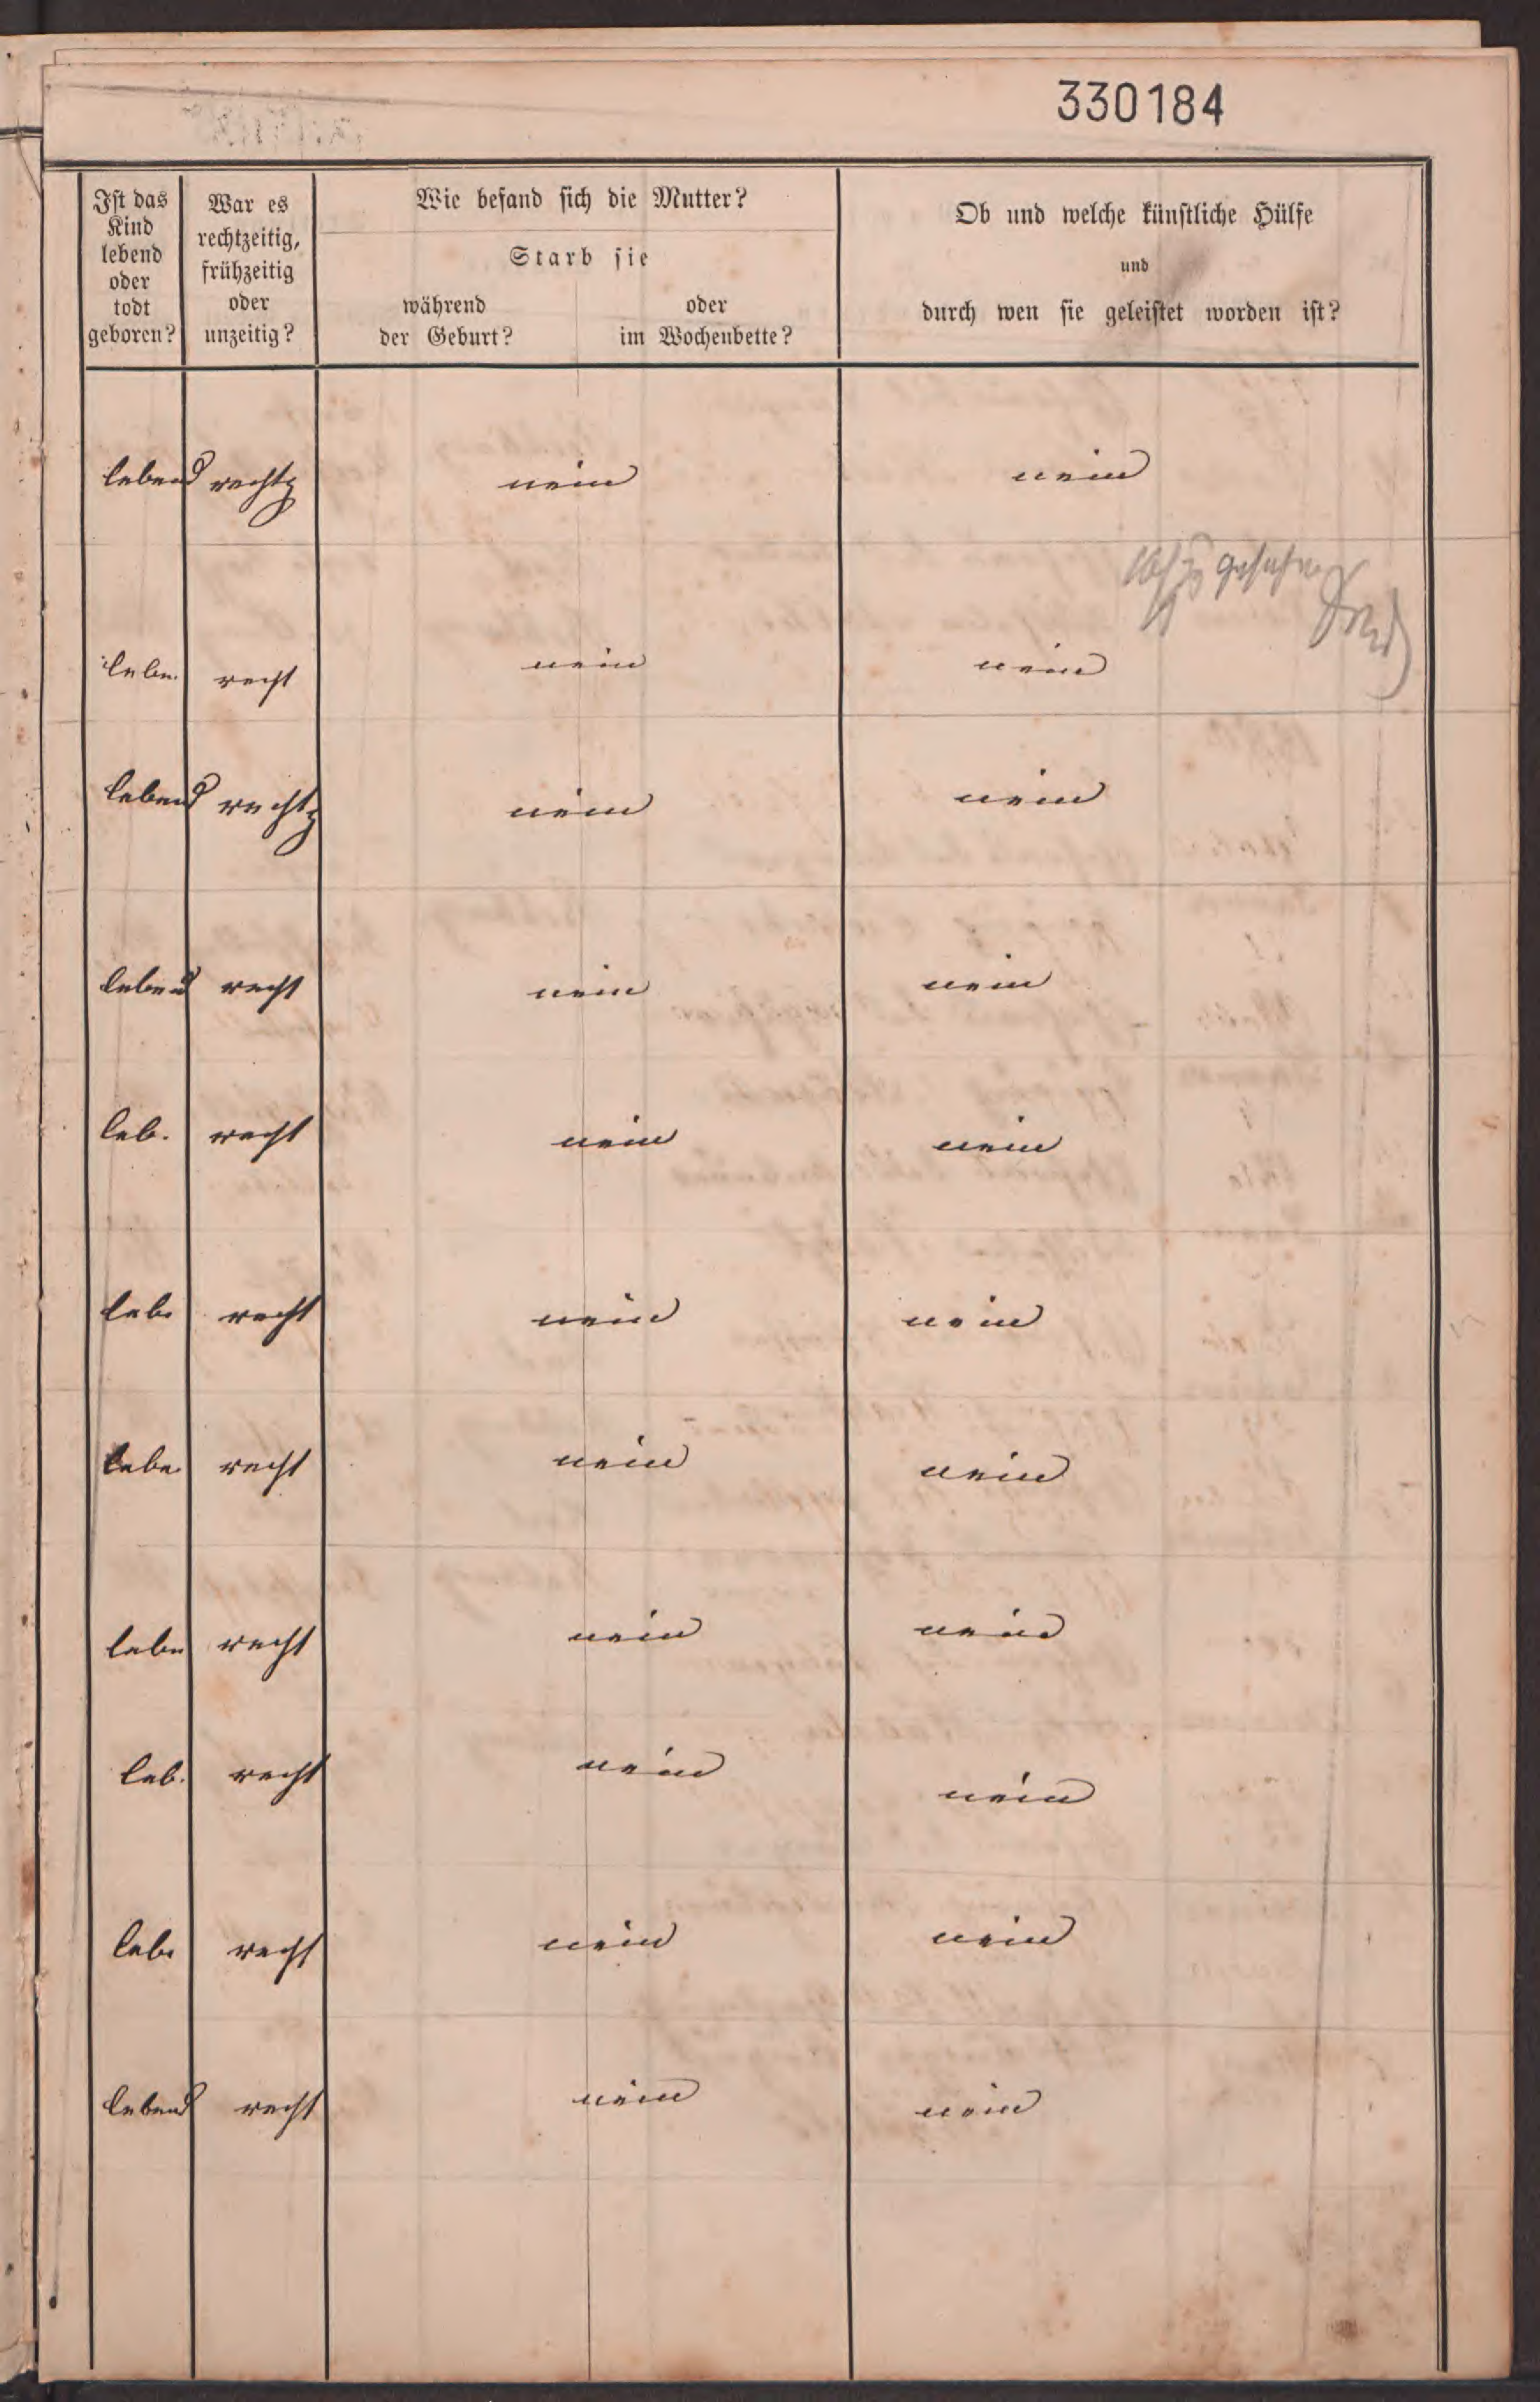 330184
Ist das Kind lebend oder todt geboren?
War es rechtzeitig, frühzeitig oder unzeitig?
Wie befand sich die Mutter?
Starb sie
während der Geburt?
oder im Wochenbette?
Ob und welche künstliche Hülfe
und
durch wen sie geleistet worden ist?
lebend rechtz nein nein
gesehen
lebe. recht nein nein
lebend rechtz nein nein
lebend recht nein nein
leb. recht nein nein
leb. recht nein nein
lebe recht nein nein
lebe recht nein nein
leb. recht nein nein
leb. recht nein nein
lebend recht nein nein